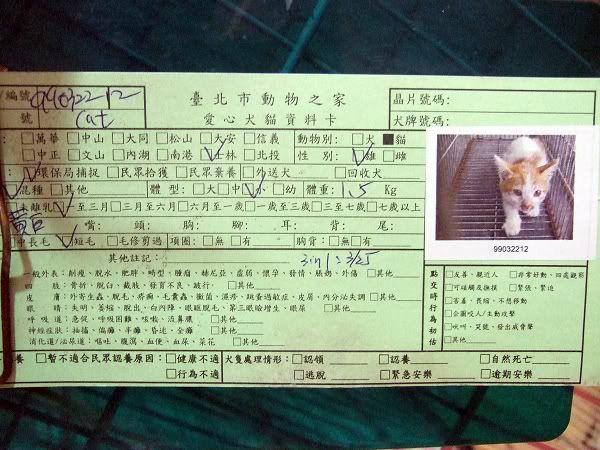 編號 99032212 臺北市動物之家 晶片號碼:
號 Cat 愛心犬貓資料卡 犬牌號碼:
□萬華 □中山 □大同 □松山 □大安 □信義 動物別: □犬 ■貓
□中正 □文山 □內湖 □南港 ☑士林 □北投 性別: ☑雄 □雌
□環保局捕捉 □民眾拾獲 □民眾棄養 □外送犬 □回收犬
☑混種 □其他 體型: □大 □中 ☑小 □幼 體重: 1.5 Kg
□未離乳 ☑至三月 □三至六月 □六月至一歲 □一歲至三歲 □三至七歲 □七歲以上
黃白 嘴: 頭: 胸: 腳: 耳: 背: 尾:
□中長毛 ☑短毛 □毛修剪過 項圈: □無 □有 胸背: □無 □有
99032212
其他註記: 3in1: 3/25
一般外表: 削瘦、脫水、肥胖、畸型、腫瘤、赫尼亞、虛弱、懷孕、發情、脹奶、外傷 □其他
四肢: 骨折、脫臼、截肢、發育不良、跛行 □其他
皮膚: 外寄生蟲、脫毛、疥癬、毛囊蟲、黴菌、濕疹、跳蚤過敏症、皮屑、內分泌失調 □其他
眼睛: 失明、萎縮、脫出、白內障、眼瞼脫毛、第三眼瞼增生、眼屎 □其他
呼吸道: 急促、呼吸困難、咳嗽、流鼻膿 □其他
神經症狀: 抽搐、偏癱、半癱、昏迷、全癱 □其他
消化道/泌尿道: 嘔吐、腹瀉、血便、血尿、尿花 □其他
點交時行為初估
□友善、親近人 □非常好動、四處觀察
□可碰觸及撫摸 □緊張、緊迫
□害羞、畏縮、不想移動
□企圖咬人/主動攻擊
□吠叫、哭號、發出威脅聲
□其他
□暫不適合民眾認養原因: □健康不適 犬隻處理情形: □認領 □認養 □自然死亡
□行為不適 □逃脫 □緊急安樂 □逾期安樂